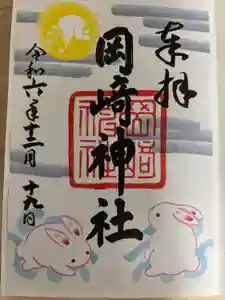 奉拝
岡崎神社
令和六年十二月十九日